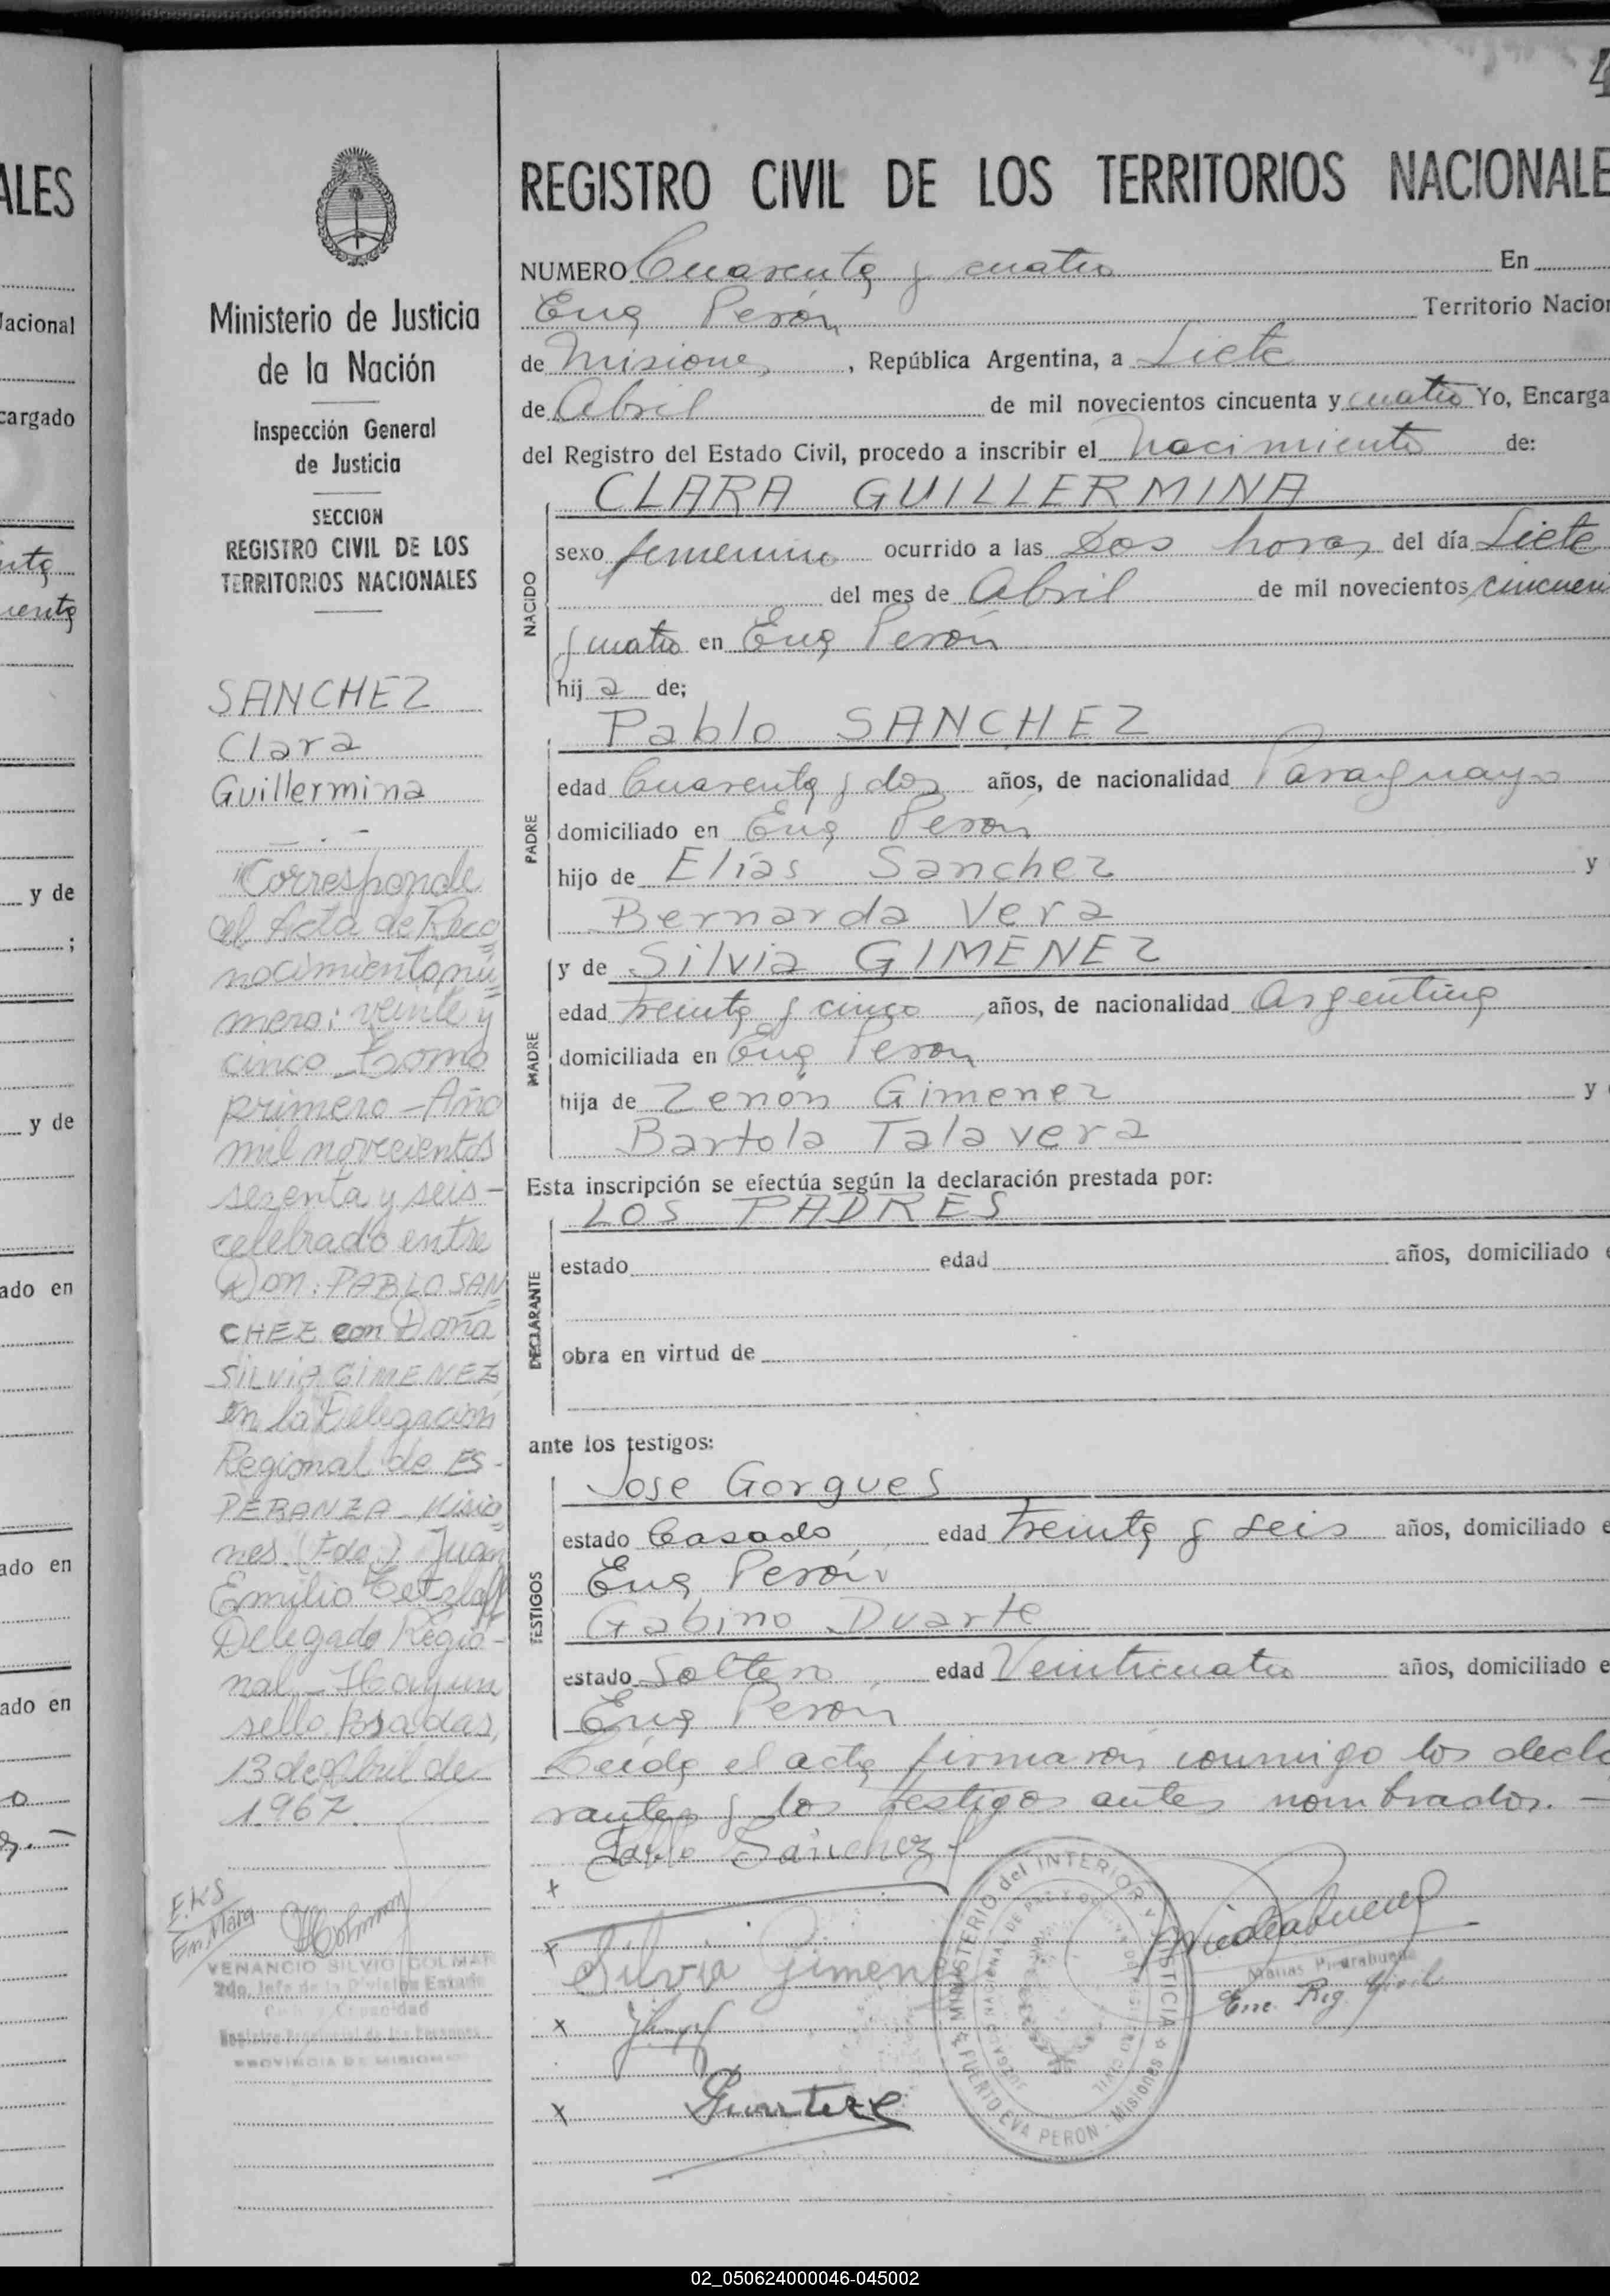 4
ALES
Nacional
cargado
y de
;
y de
ado en
ado en
ado en
Ministerio de Justicia
de la Nación
Inspección General
de Justicia
SECCION
REGISTRO CIVIL DE LOS
TERRITORIOS NACIONALES
SANCHEZ
Clara
Guillermina
"Corresponde
al Acta de Reco=
nocimiento nú=
mero: veinte y
cinco - Tomo
primero - Año
mil novecientos
sesenta y seis -
celebrado entre
Don: PABLO SAN=
CHEZ con Doña
SILVIA GIMENEZ
en la Delegación
Regional de ES-
PERANZA - Misio=
nes. (Fdo.) Juan
Emilio Tetzlaff
Delegado Regio-
nal - Hay un
sello. Posadas,
13 de Abril de
1967.
E.K.S
VENANCIO SILVIO COLMAN
2do. Jefe de la División Estado
Civil y Capacidad
Registro Provincial de las Personas
PROVINCIA DE MISIONES
REGISTRO CIVIL DE LOS TERRITORIOS NACIONALE
NUMERO Cuarenta y cuatro En
Eva Perón Territorio Nacion
de Misiones, República Argentina, a Siete
de Abril de mil novecientos cincuenta y cuatro Yo, Encarga
del Registro del Estado Civil, procedo a inscribir el Nacimiento de:
NACIDO
CLARA GUILLERMINA
sexo femenino ocurrido a las Dos horas del día Siete
del mes de Abril de mil novecientos cincuen
y cuatro en Eva Perón
hij a de;
PADRE
Pablo SANCHEZ
edad Cuarenta y dos años, de nacionalidad Paraguaya
domiciliado en Eva Perón
hijo de Elías Sanchez y
Bernarda Vera
MADRE
y de Silvia GIMENEZ
edad treinta y cinco años, de nacionalidad Argentina
domiciliada en Eva Peron
hija de Zenón Gimenez y
Bartola Talavera
Esta inscripción se efectúa según la declaración prestada por:
DECLARANTE
LOS PADRES
estado edad años, domiciliado e
obra en virtud de
ante los testigos:
TESTIGOS
Jose Gorgues
estado Casado edad treinta y seis años, domiciliado e
Eva Perón
Gabino Duarte
estado Soltero edad Veinticuatro años, domiciliado e
Eva Perón
Leída el acta firmaron conmigo los decla
rantes y los testigos antes nombrados. -
Pablo Sanchez
x
x Silvia Gimenez
x
x
MINISTERIO del INTERIOR y JUSTICIA
PUERTO EVA PERON - Misiones
Matias Piedrabuena
Enc. Reg. Civil
02_050624000046-045002